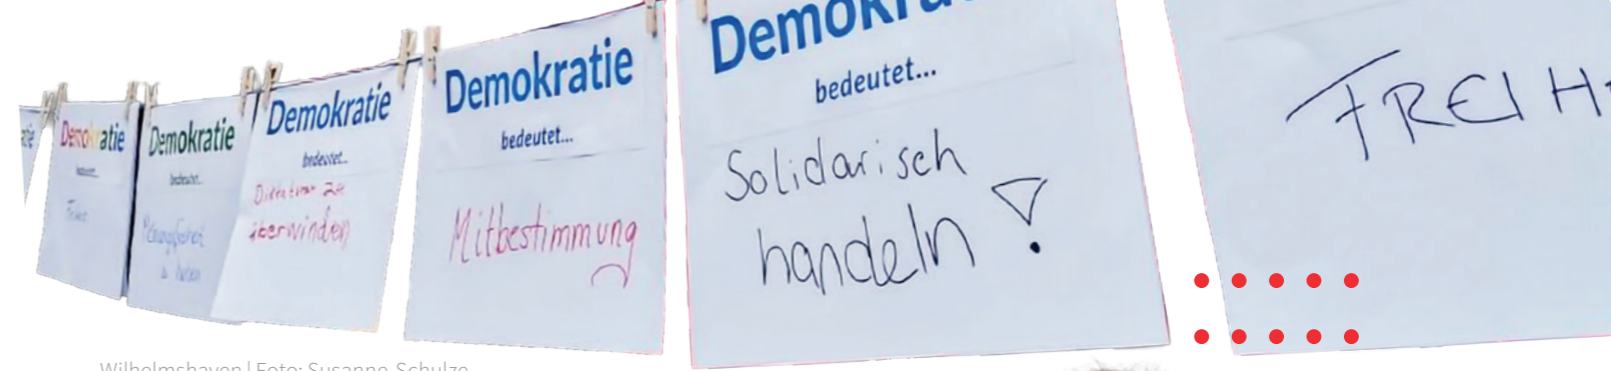 Demokratie
bedeutet...
Demokratie
bedeutet...
Meinungsfreiheit
zu haben
Demokratie
bedeutet...
Diktatur zu
überwinden
Demokratie
bedeutet...
Mitbestimmung
bedeutet...
Solidarisch
handeln!
Wilhelmshaven | Foto: Susanne Schulze